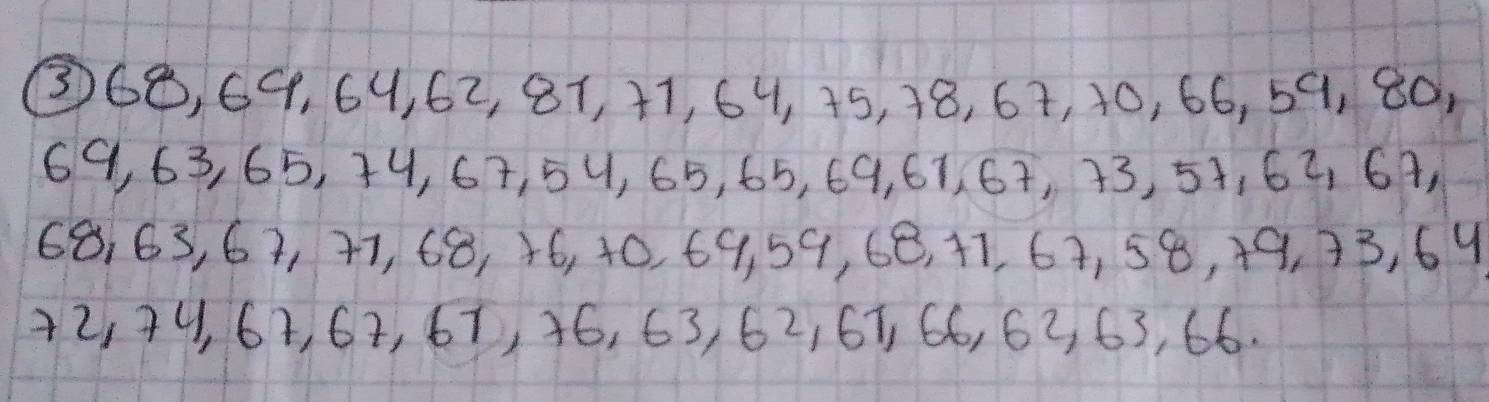 ③ 68, 69, 64, 62, 81, 71, 64, 75, 78, 67, 70, 66, 59, 80,
69, 63, 65, 74, 67, 54, 65, 65, 69, 61, 67, 73, 57, 62, 67,
68, 63, 67, 71, 68, 76, 70, 69, 59, 68, 71, 67, 58, 79, 73, 64
72, 74, 67, 67, 61, 76, 63, 62, 61, 66, 62, 63, 66.